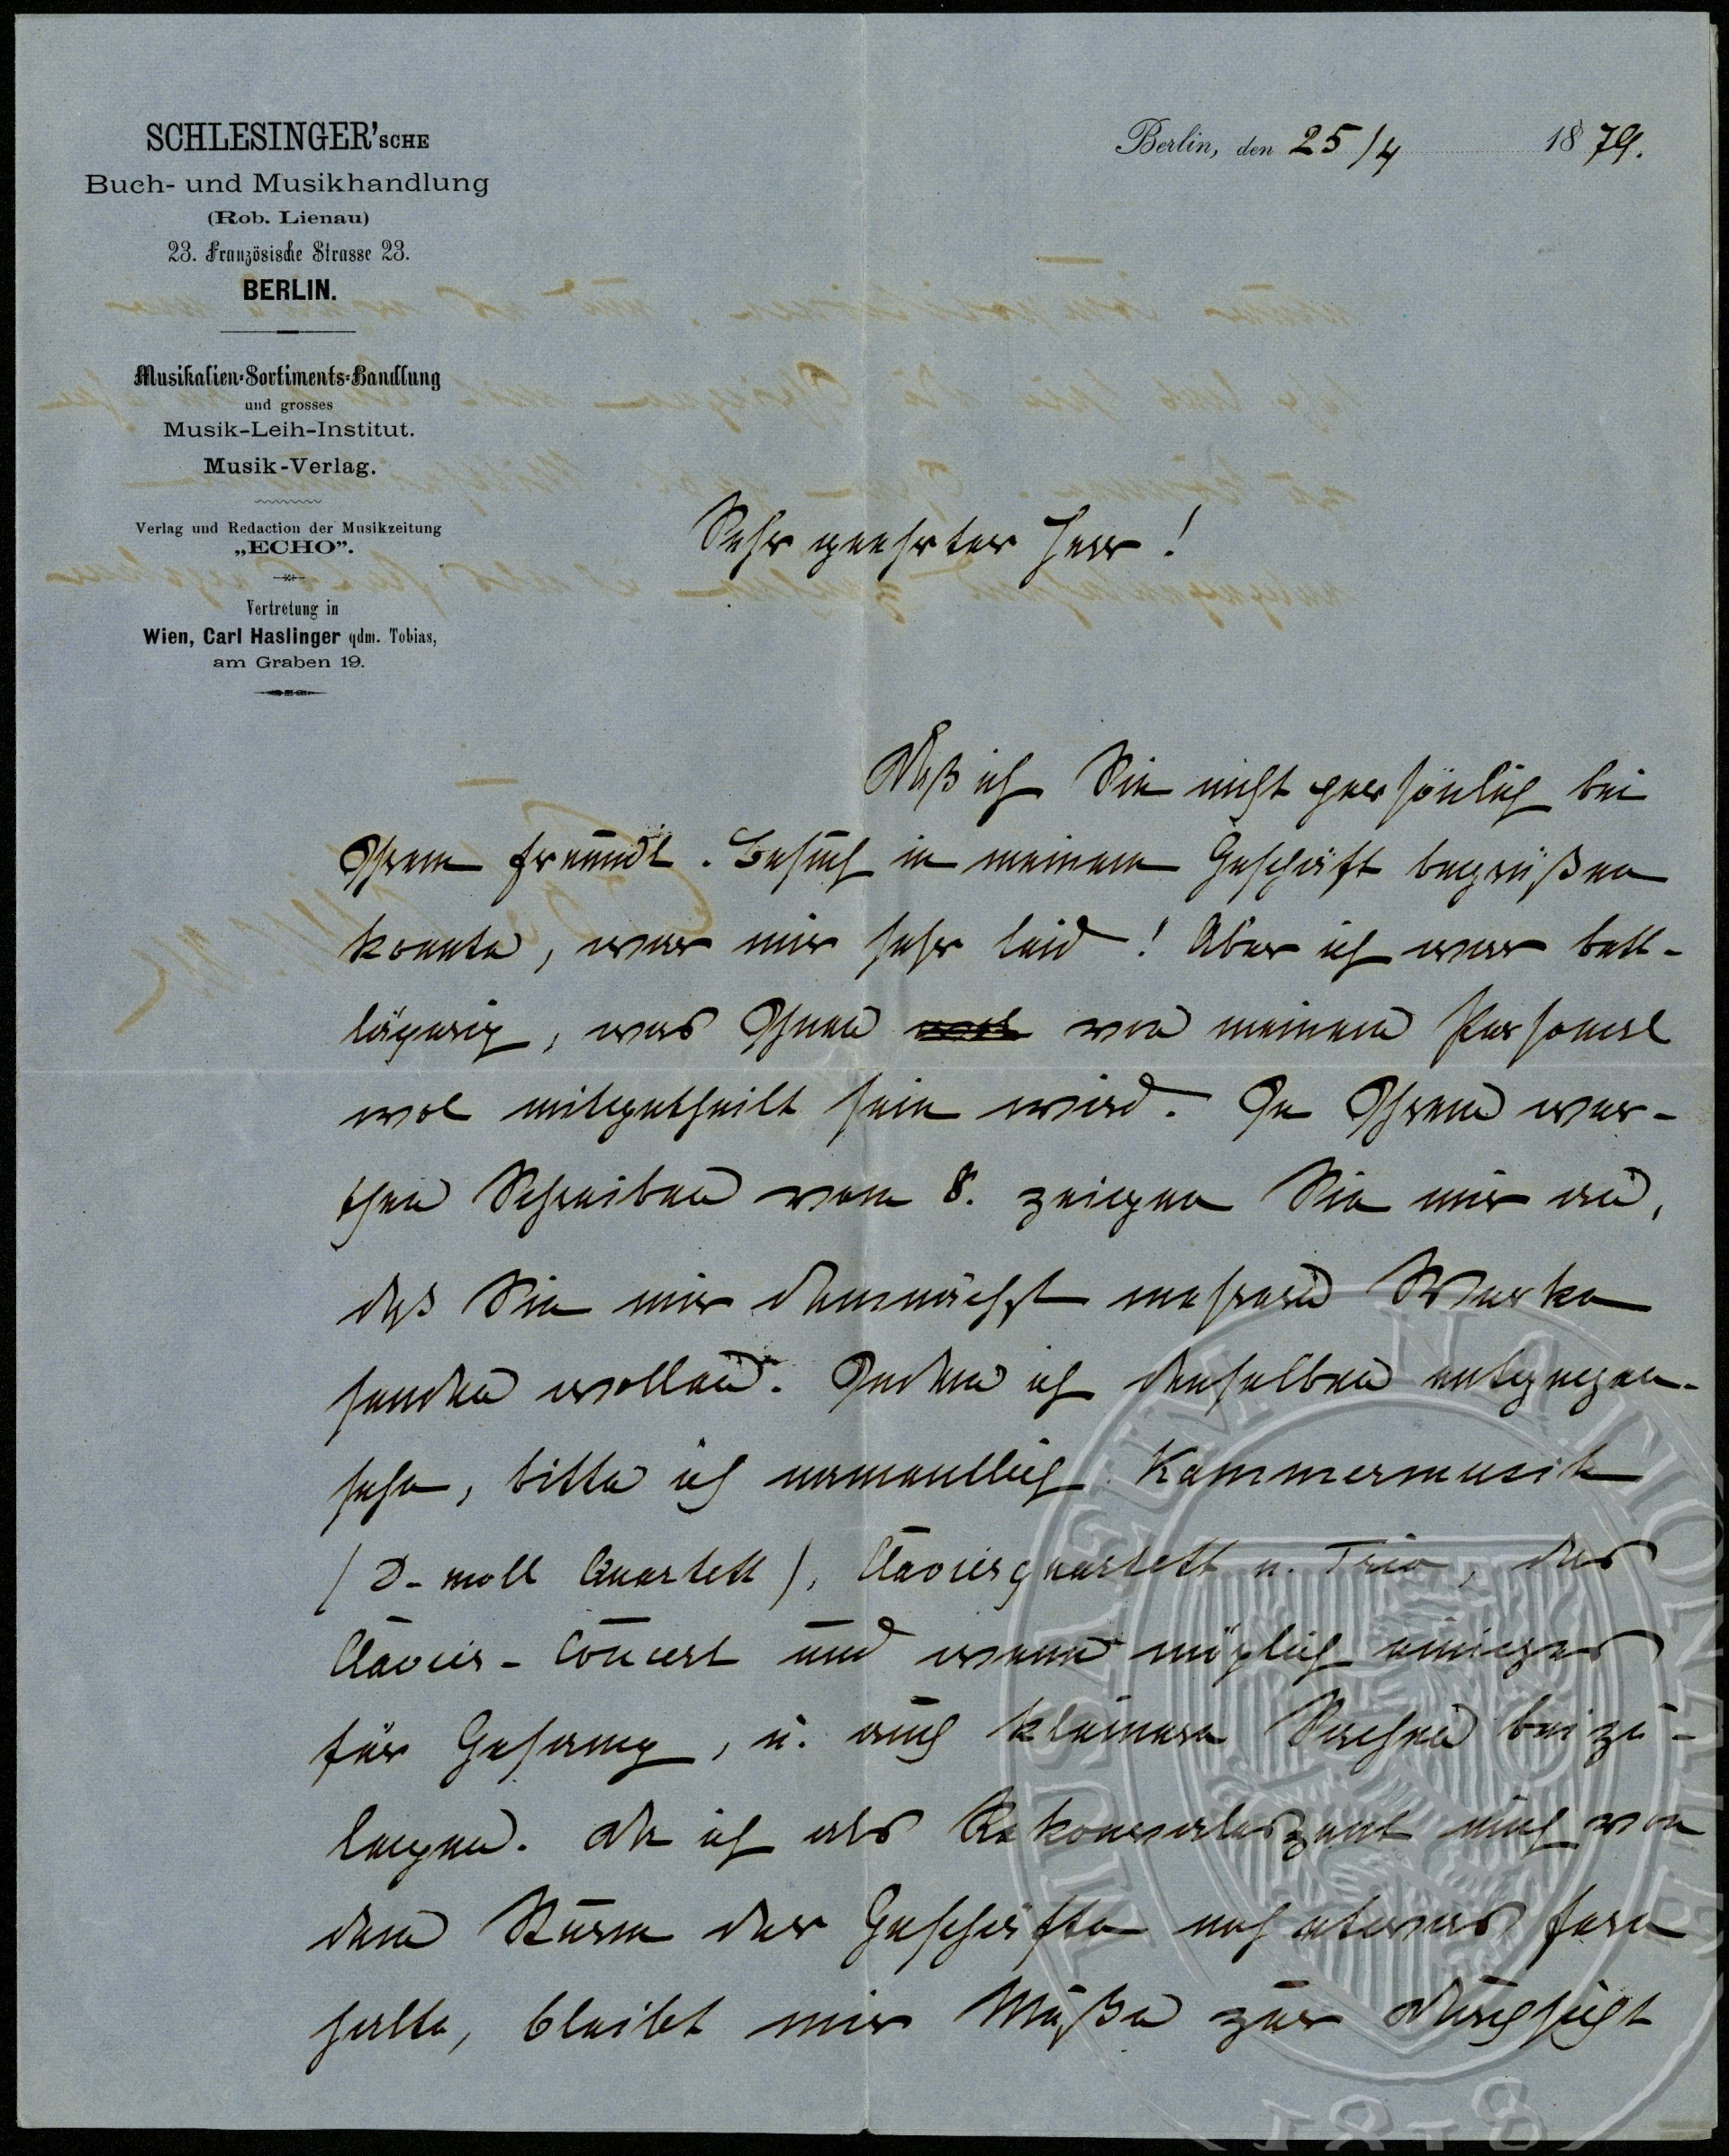 SCHLESINGER'SCHE
Buch- und Musikhandlung
(Rob. Lienau)
23. Französische Strasse 23.
BERLIN.
Musikalien-Sortiments-Handlung
und grosses
Musik-Leih-Institut.
Musik-Verlag.
Verlag und Redaction der Musikzeitung
„ECHO”.
Vertretung in
Wien, Carl Haslinger qdm. Tobias,
am Graben 19.
Berlin, den 25/4 1879.
Sehr geehrter Herr!
Daß ich Sie nicht persönlich bei
Ihrem freundl. Besuch in meinem Geschäft begrüßen
konnte, war mir sehr leid! Aber ich war bett-
lägerig, was Ihnen von meinem Personal
wol mitgetheilt sein wird. In Ihrem wer-
then Schreiben vom 8. zeigen Sie mir an,
daß Sie mir demnächst mehrere Werke
senden wollen. Indem ich denselben entgegen-
sehe, bitte ich namentlich Kammermusik
(D-moll Quartett), Clavierquartett u. Trio, das
Clavier-Concert und wenn möglich einiges
für Gesang, u. auch kleinere Sachen beizu-
legen. Da ich als Rekonvaleszent mich von
dem Sturm der Geschäfte noch etwas fern
halte, bleibt mir Muße zur Durchsicht
MUSAEUM NATIONALE
1818